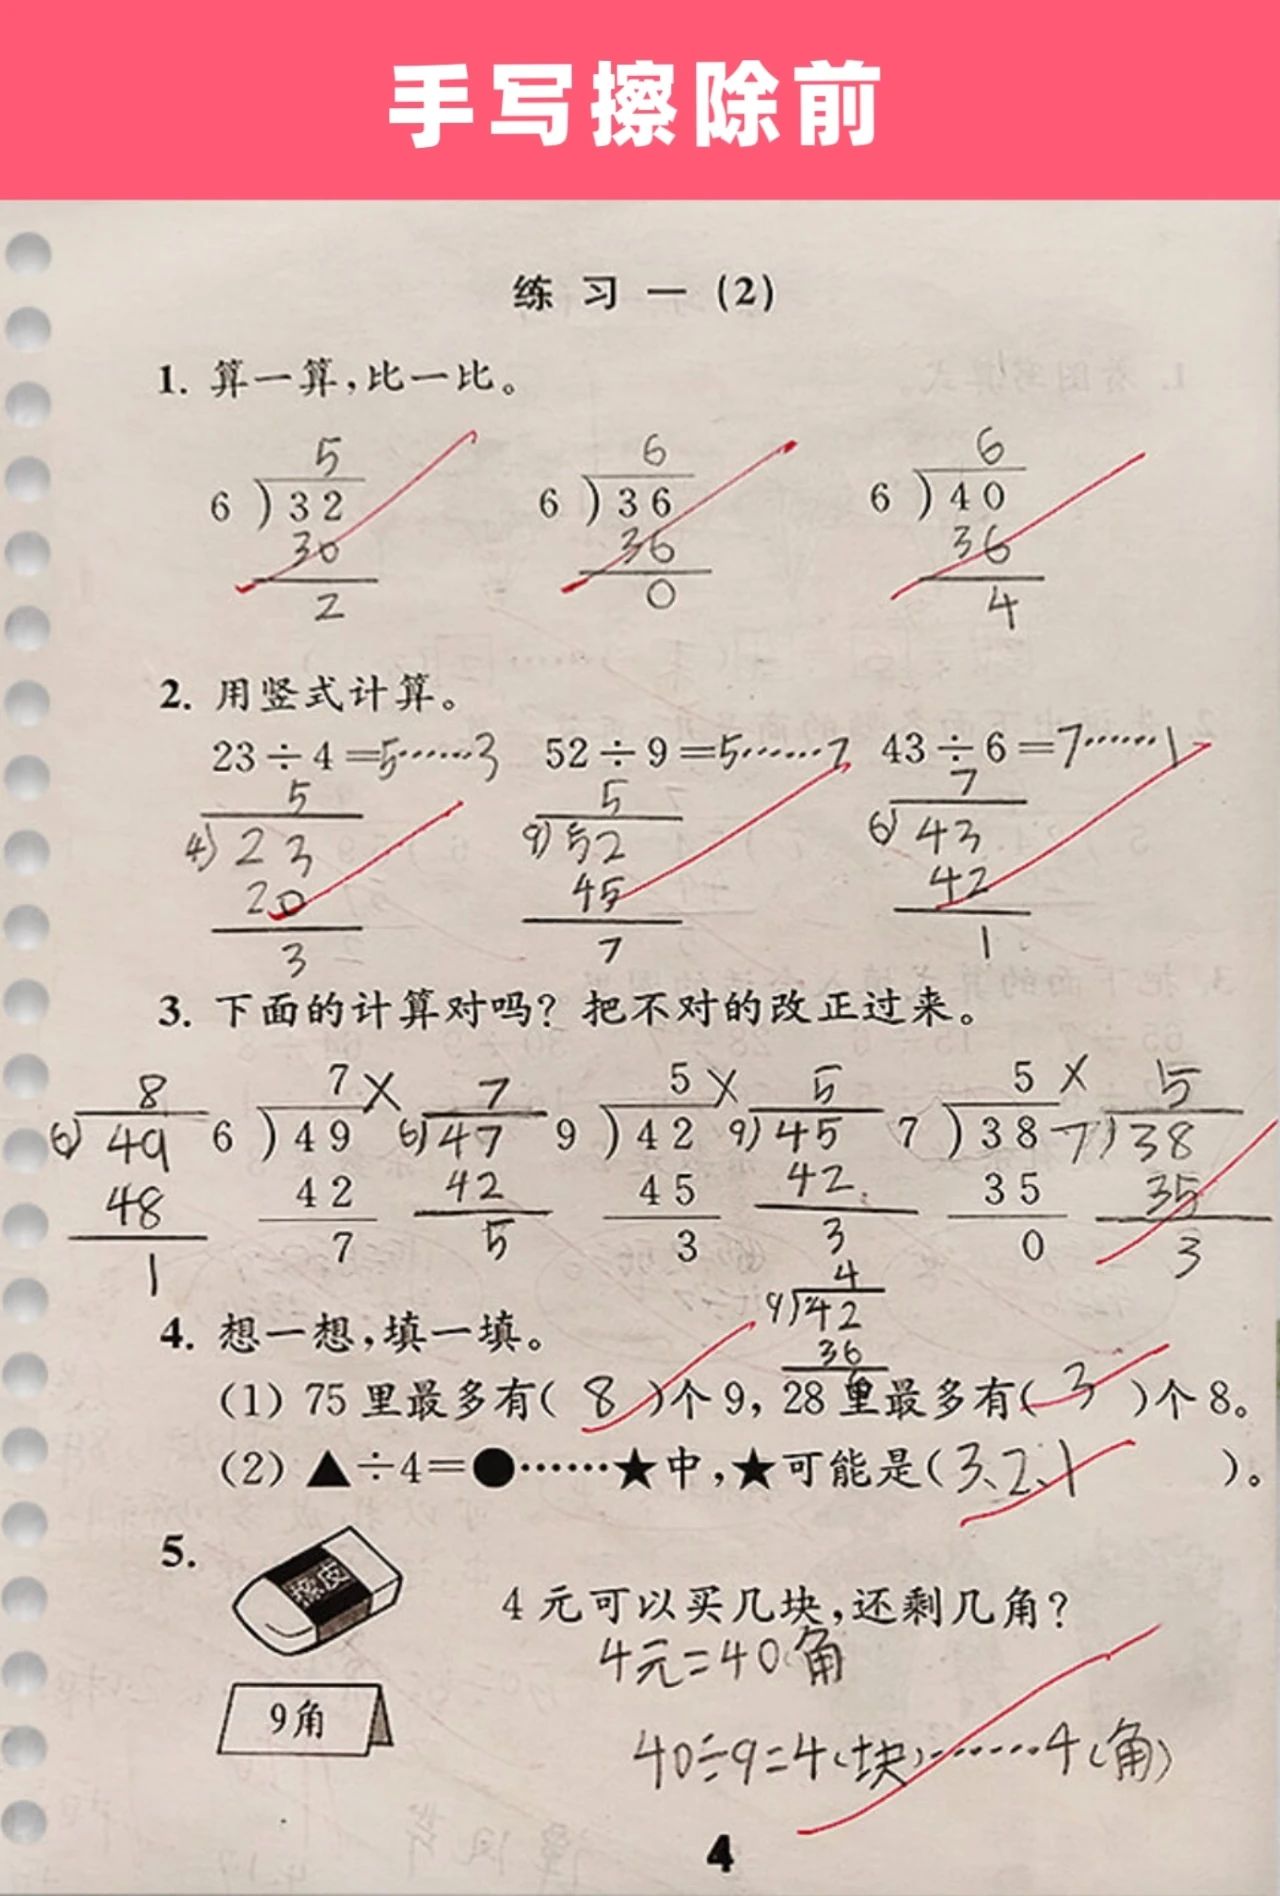 手写擦除前
练习一(2)
1. 算一算,比一比。
5 6 6
6)32 6)36 6)40
30 36 36
2 0 4
2. 用竖式计算。
23÷4=5……3 52÷9=5……7 43÷6=7……1
5 5 7
4)23 9)52 6)43
20 45 42
3 7 1
3. 下面的计算对吗? 把不对的改正过来。
8 7× 7 5× 5 5× 5
6)49 6)49 6)47 9)42 9)45 7)38 7)38
48 42 42 45 42 35 35
1 7 5 3 3 0 3
4
9)42
36
6
4. 想一想,填一填。
(1) 75里最多有(8)个9, 28里最多有(3)个8。
(2) ▲÷4=●……★中,★可能是(3、2、1)。
5.
橡皮
9角
4元可以买几块,还剩几角?
4元=40角
40÷9=4(块)……4(角)
4